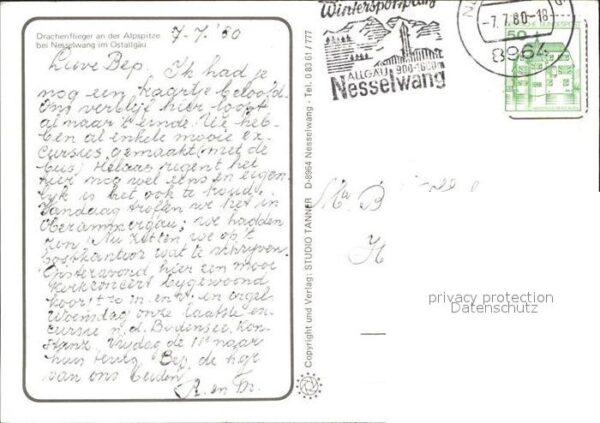 Drachenflieger an der Alpspitze
bei Nesselwang im Ostallgäu
7-7.'80
Lieve Bep. Ik had je
nog een kaartje beloofd.
Ons verblijf hier loopt
al naar 't einde. We heb-
ben al enkele mooie ex-
cursies gemaakt (met de
bus) Helaas regent het
hier nog wel eens en eigen-
lijk is het ook te koud.
Vandaag troffen we het in
Oberammergau; we hadden
zon! Nu zitten we op 't
postkantoor wat te schrijven.
Gisteravond hier een mooi
kerkconcert bijgewoond
koor, in en orgel
Woensdag onze laatste ex-
cursie n.d. Bodensee, Kon-
stanz. Vrijdag de 11e naar
huis terug. Bep, de
van ons beiden.
R. en
Copyright und Verlag: STUDIO TANNER · D-8964 Nesselwang · Tel. 0 83 61 / 777
Wintersportplatz
ALLGÄU 900-1600m
Nesselwang
-7.7.80-18
8964
50
BUNDESPOST
B
H
privacy protection
Datenschutz